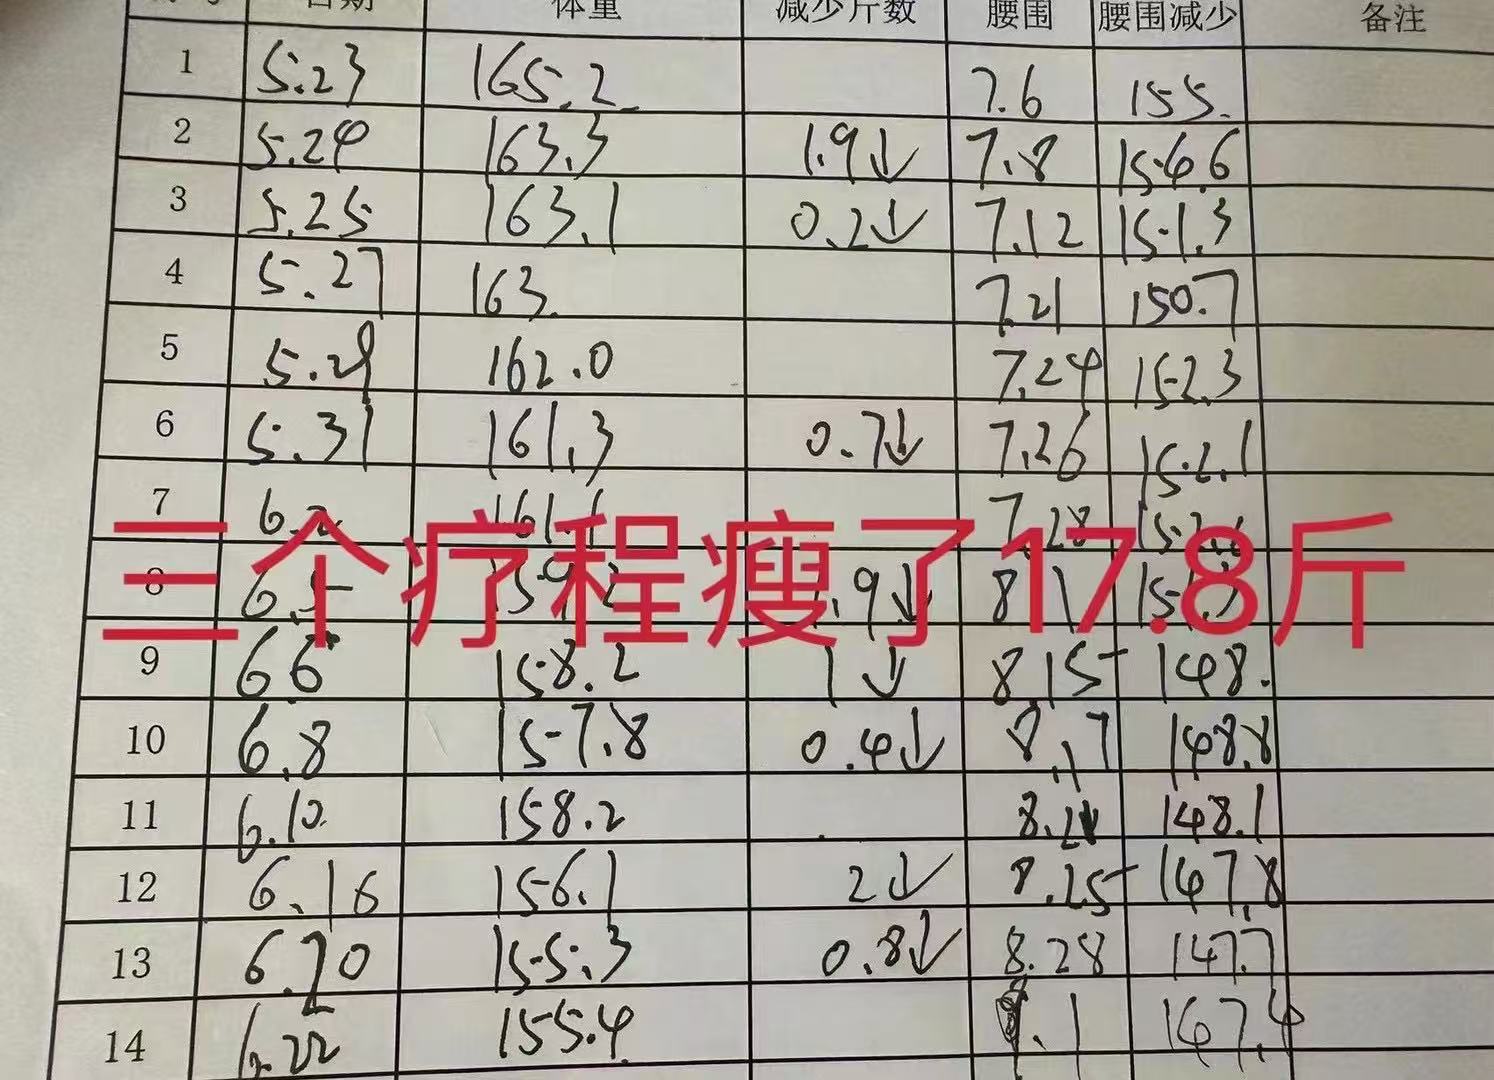 日期 体重 减少斤数 腰围 腰围减少 备注
1 5.23 165.2 7.6 155.
2 5.24 163.3 1.9↓ 7.8 154.6
3 5.25 163.1 0.2↓ 7.12 151.3
4 5.27 163. 7.21 150.7
5 5.29 162.0 7.24 152.3
6 5.31 161.3 0.7↓ 7.26 152.1
7 161.1 7.28
三个疗程瘦了17.8斤
8 6.5
9 6.6 158.2 1↓ 8.15 148.
10 6.8 157.8 0.4↓ 8.17 148.8
11 6.10 158.2 148.1
12 6.16 156.1 2↓ 8.25 147.8
13 6.20 155.3 0.8↓ 8.28 147.7
14 6.22 155.4 9.1 147.4